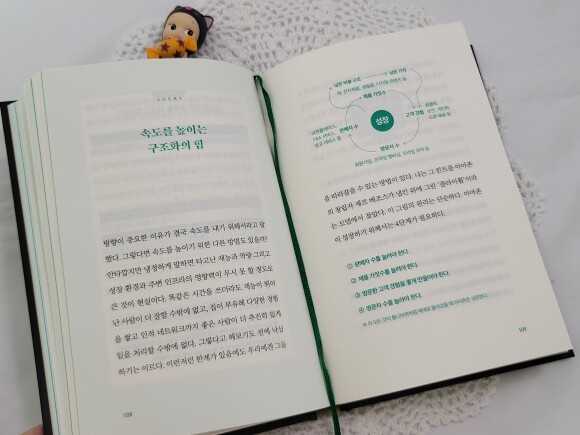 LUCKY
속도를 높이는
구조화의 힘
방향이 중요한 이유가 결국 속도를 내기 위해서라고 말
했다. 그렇다면 속도를 높이기 위한 다른 방법도 있을까?
안타깝지만 냉정하게 말하면 타고난 재능과 역량 그리고
성장 환경과 주변 인프라의 영향력이 무시 못 할 정도로
큰 것이 현실이다. 똑같은 시간을 쓰더라도 재능이 뛰어
난 사람이 더 잘할 수밖에 없고, 집이 부유해 다양한 경험
을 쌓고 인적 네트워크까지 좋은 사람이 더 추진력 있게
일을 처리할 수밖에 없다. 그렇다고 해보기도 전에 낙심
하기는 이르다. 이런저런 한계가 있음에도 우리에겐 그들
108
낮은 비용 구조
낮은 가격
제품 가짓수
판매자 수
성장
고객 경험
방문자 수
을 따라잡을 수 있는 방법이 있다. 나는 그 힌트를 아마존
의 창립자 제프 베조스가 냅킨 위에 그린 '플라이휠'이라
는 모델에서 찾았다. 이 그림의 원리는 단순하다. 아마존
이 성장하기 위해서는 4단계가 필요하다.
① 판매자 수를 늘려야 한다.
② 제품 가짓수를 늘려야 한다.
③ 방문한 고객 경험을 좋게 만들어야 한다.
④ 방문자 수를 늘려야 한다.
109